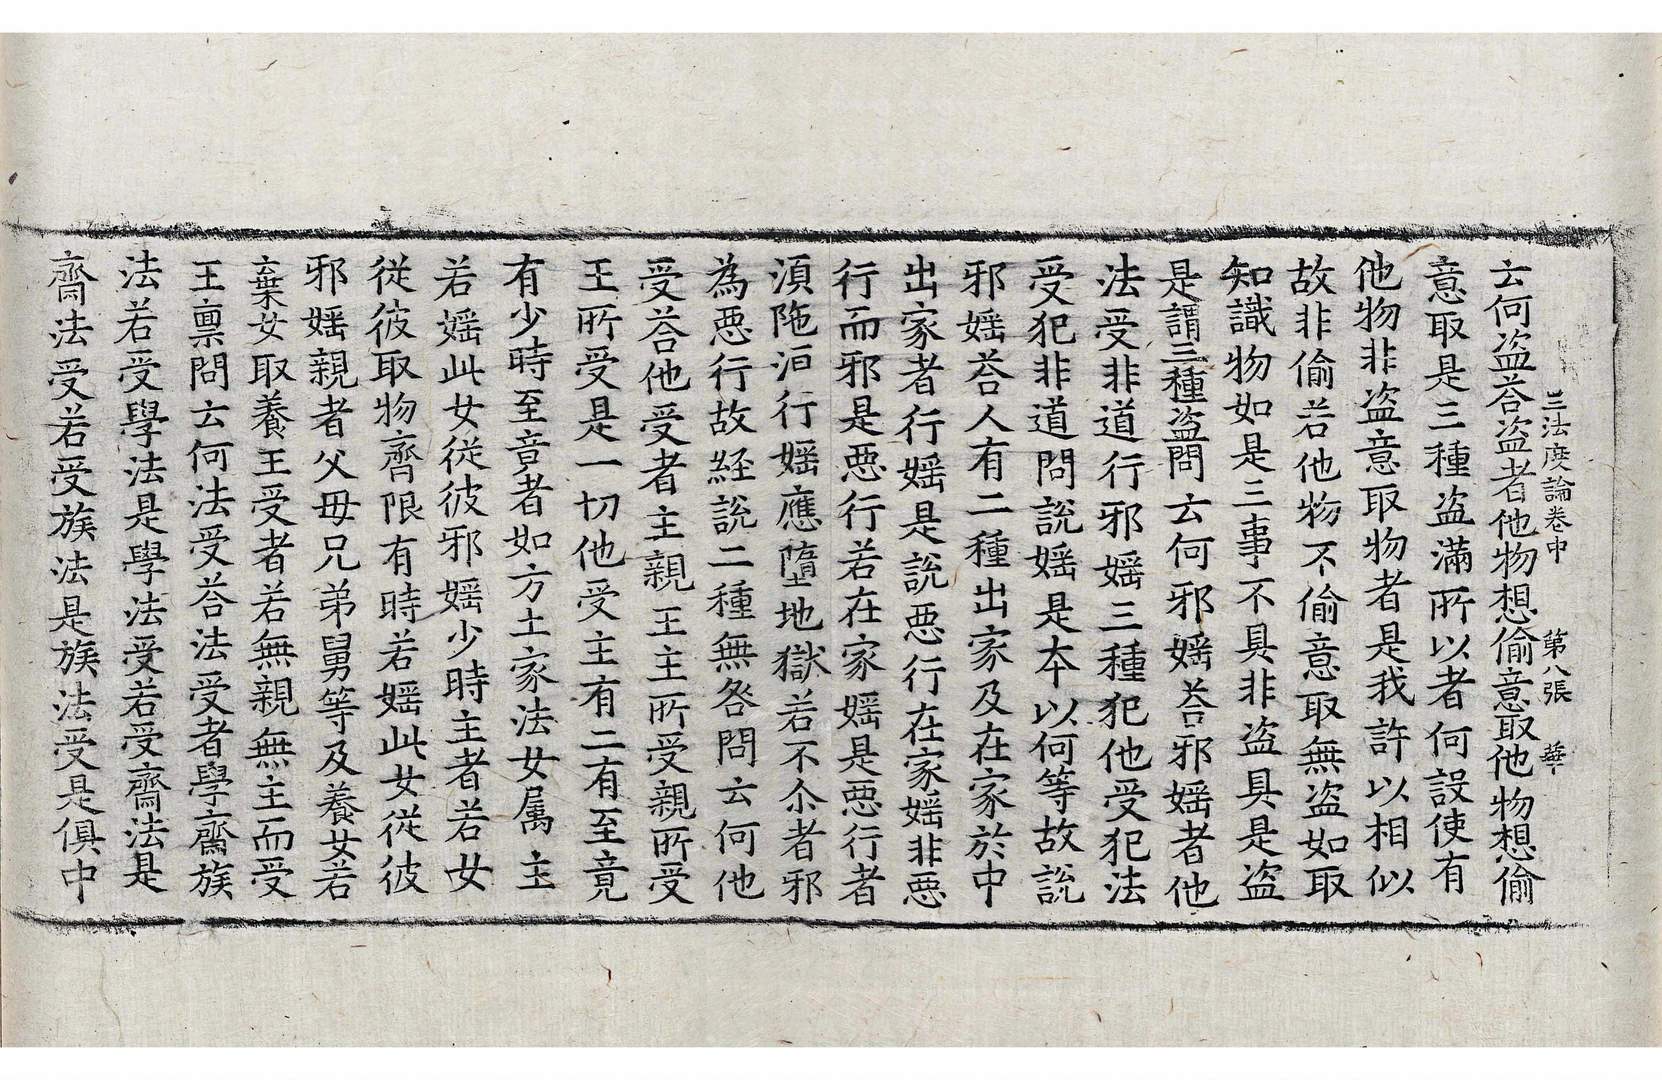 三法度論卷中　第八張　華
云何盗荅盗者他物想偷意取他物想偷
意取是三種盗滿所以者何設使有
他物非盗意取物者是我許以相似
故非偷若他物不偷意取無盗如取
知識物如是三事不具非盗具是盗
是謂三種盗問云何邪婬荅邪婬者他
法受非道行邪婬三種犯他受犯法
受犯非道問說婬是本以何等故說
邪婬荅人有二種出家及在家於中
出家者行婬是說惡行在家婬非惡
行而邪是惡行若在家婬是惡行者
湏陁洹行婬應墮地獄若不尒者邪
為惡行故經說二種無咎問云何他
受荅他受者主親王主所受親所受
王所受是一切他受主有二有至竟
有少時至竟者如方土家法女属主
若婬此女從彼邪婬少時主者若女
從彼取物齊限有時若婬此女從彼
邪婬親者父母兄弟舅等及養女若
棄女取養王受者若無親無主而受
王禀問云何法受荅法受者學齋族
法若受學法是學法受若受齋法是
齋法受若受族法是族法受是俱中